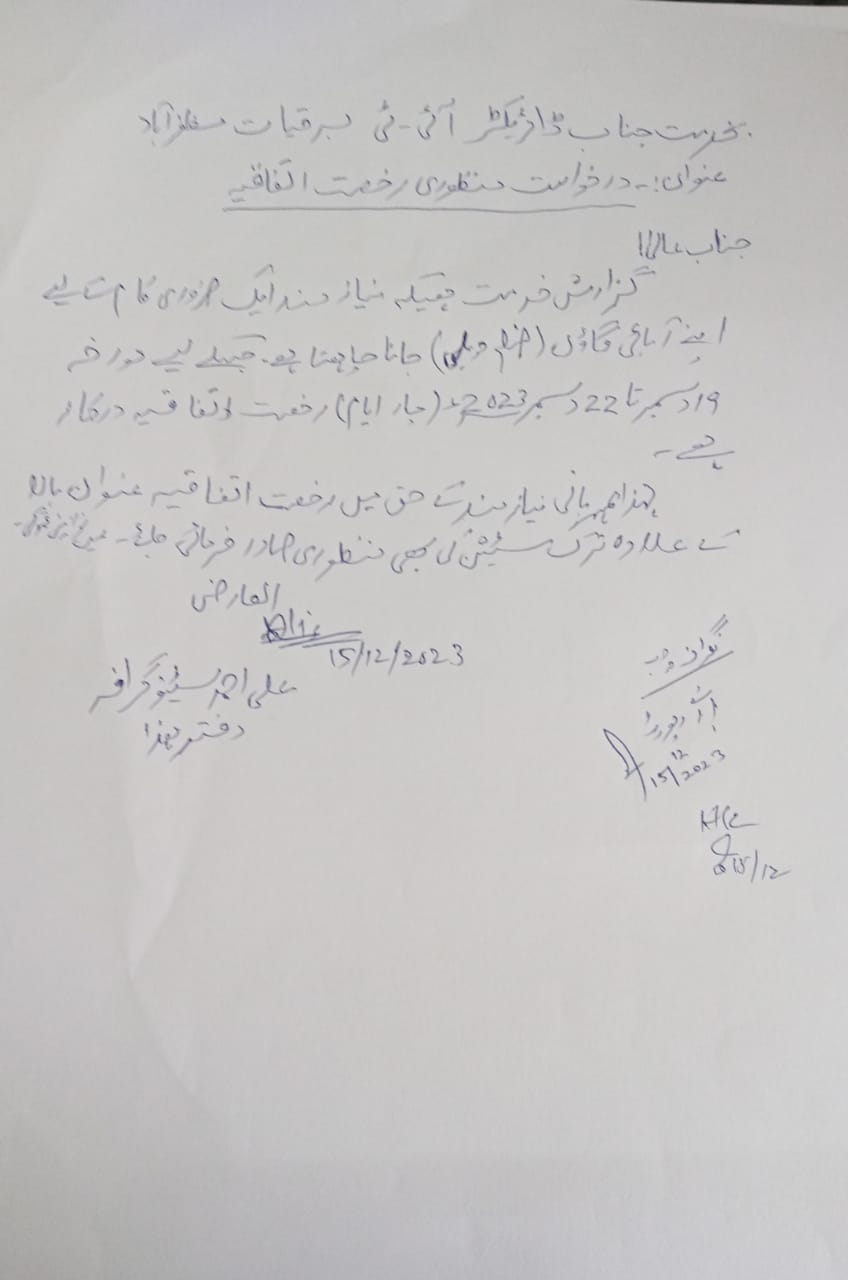 بخدمت جناب ڈائریکٹر آئی-ٹی برقیات مظفرآباد
عنوان:- درخواست منظوری رخصت اتفاقیہ
جناب عالی!
گزارش خدمت ہیکہ نیاز مند ایک ضروری کام کے لیے
اپنے آبائی گاؤں (ضلع) جانا چاہتا ہے۔ جسکے لیے مورخہ
19 دسمبر تا 22 دسمبر 2023ء (چار ایام) رخصت اتفاقیہ درکار
ہے۔
لہذا مہربانی نیاز مند کے حق میں رخصت اتفاقیہ عنوان بالا
کے علاوہ ترک سٹیشن کی بھی منظوری صادر فرمائی جائے۔ عین نوازش ہوگی۔
العارض
15/12/2023
علی احمد سٹینوگرافر
دفتر ہذا
15/12/2023
15/12